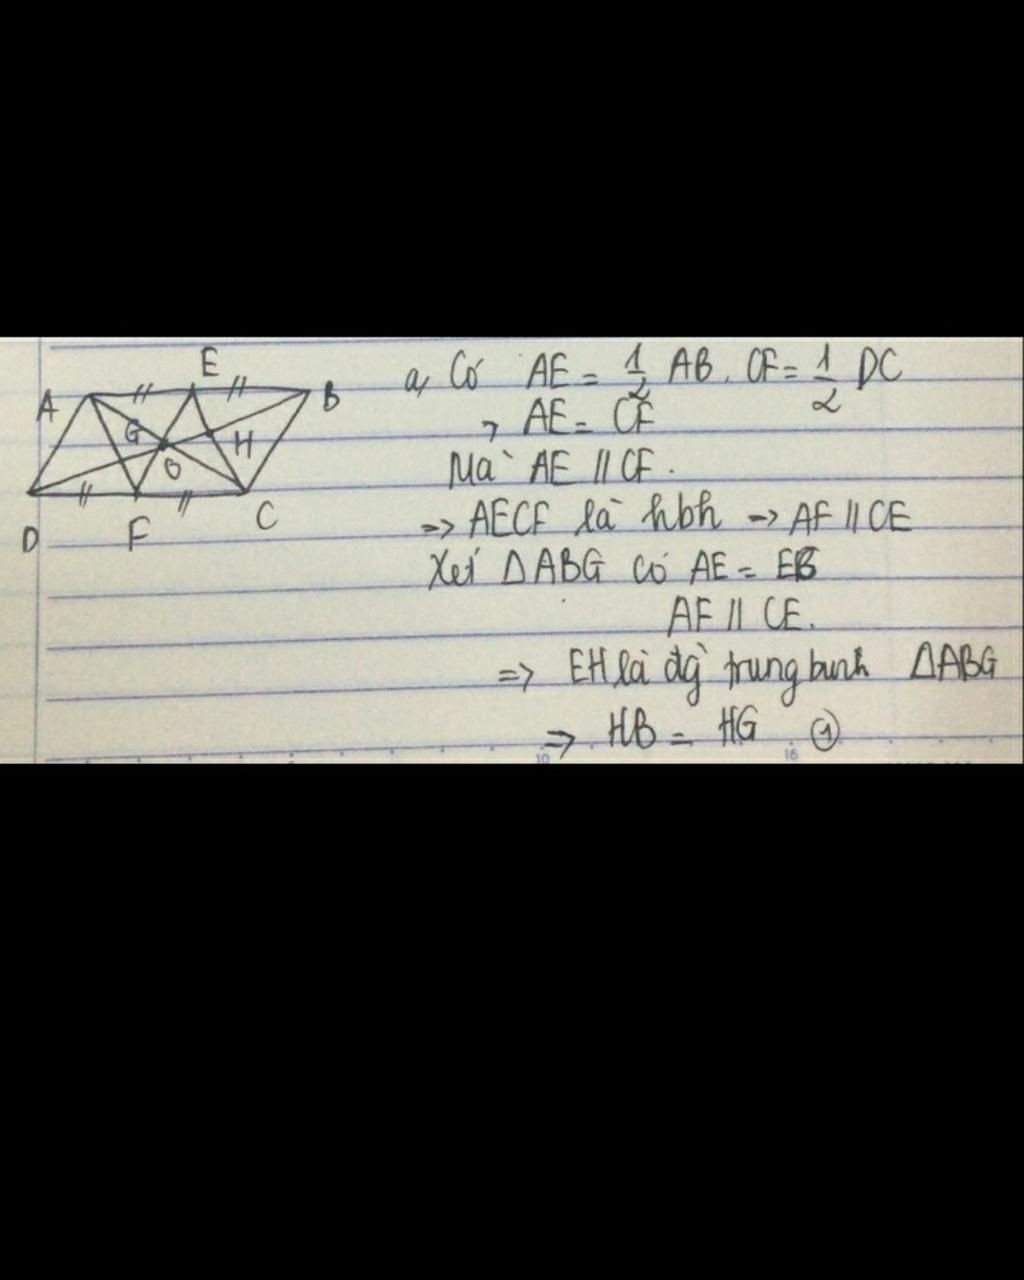 E
A
B
G
H
O
D
F
C
a, Có AE = 1/2 AB, CF = 1/2 DC
→ AE = CF
Mà AE // CF.
=> AECF là hbh -> AF // CE
Xét ΔABG có AE = EB
AF // CE.
=> EH là đg trung bình ΔABG
=> HB = HG ①
10
16